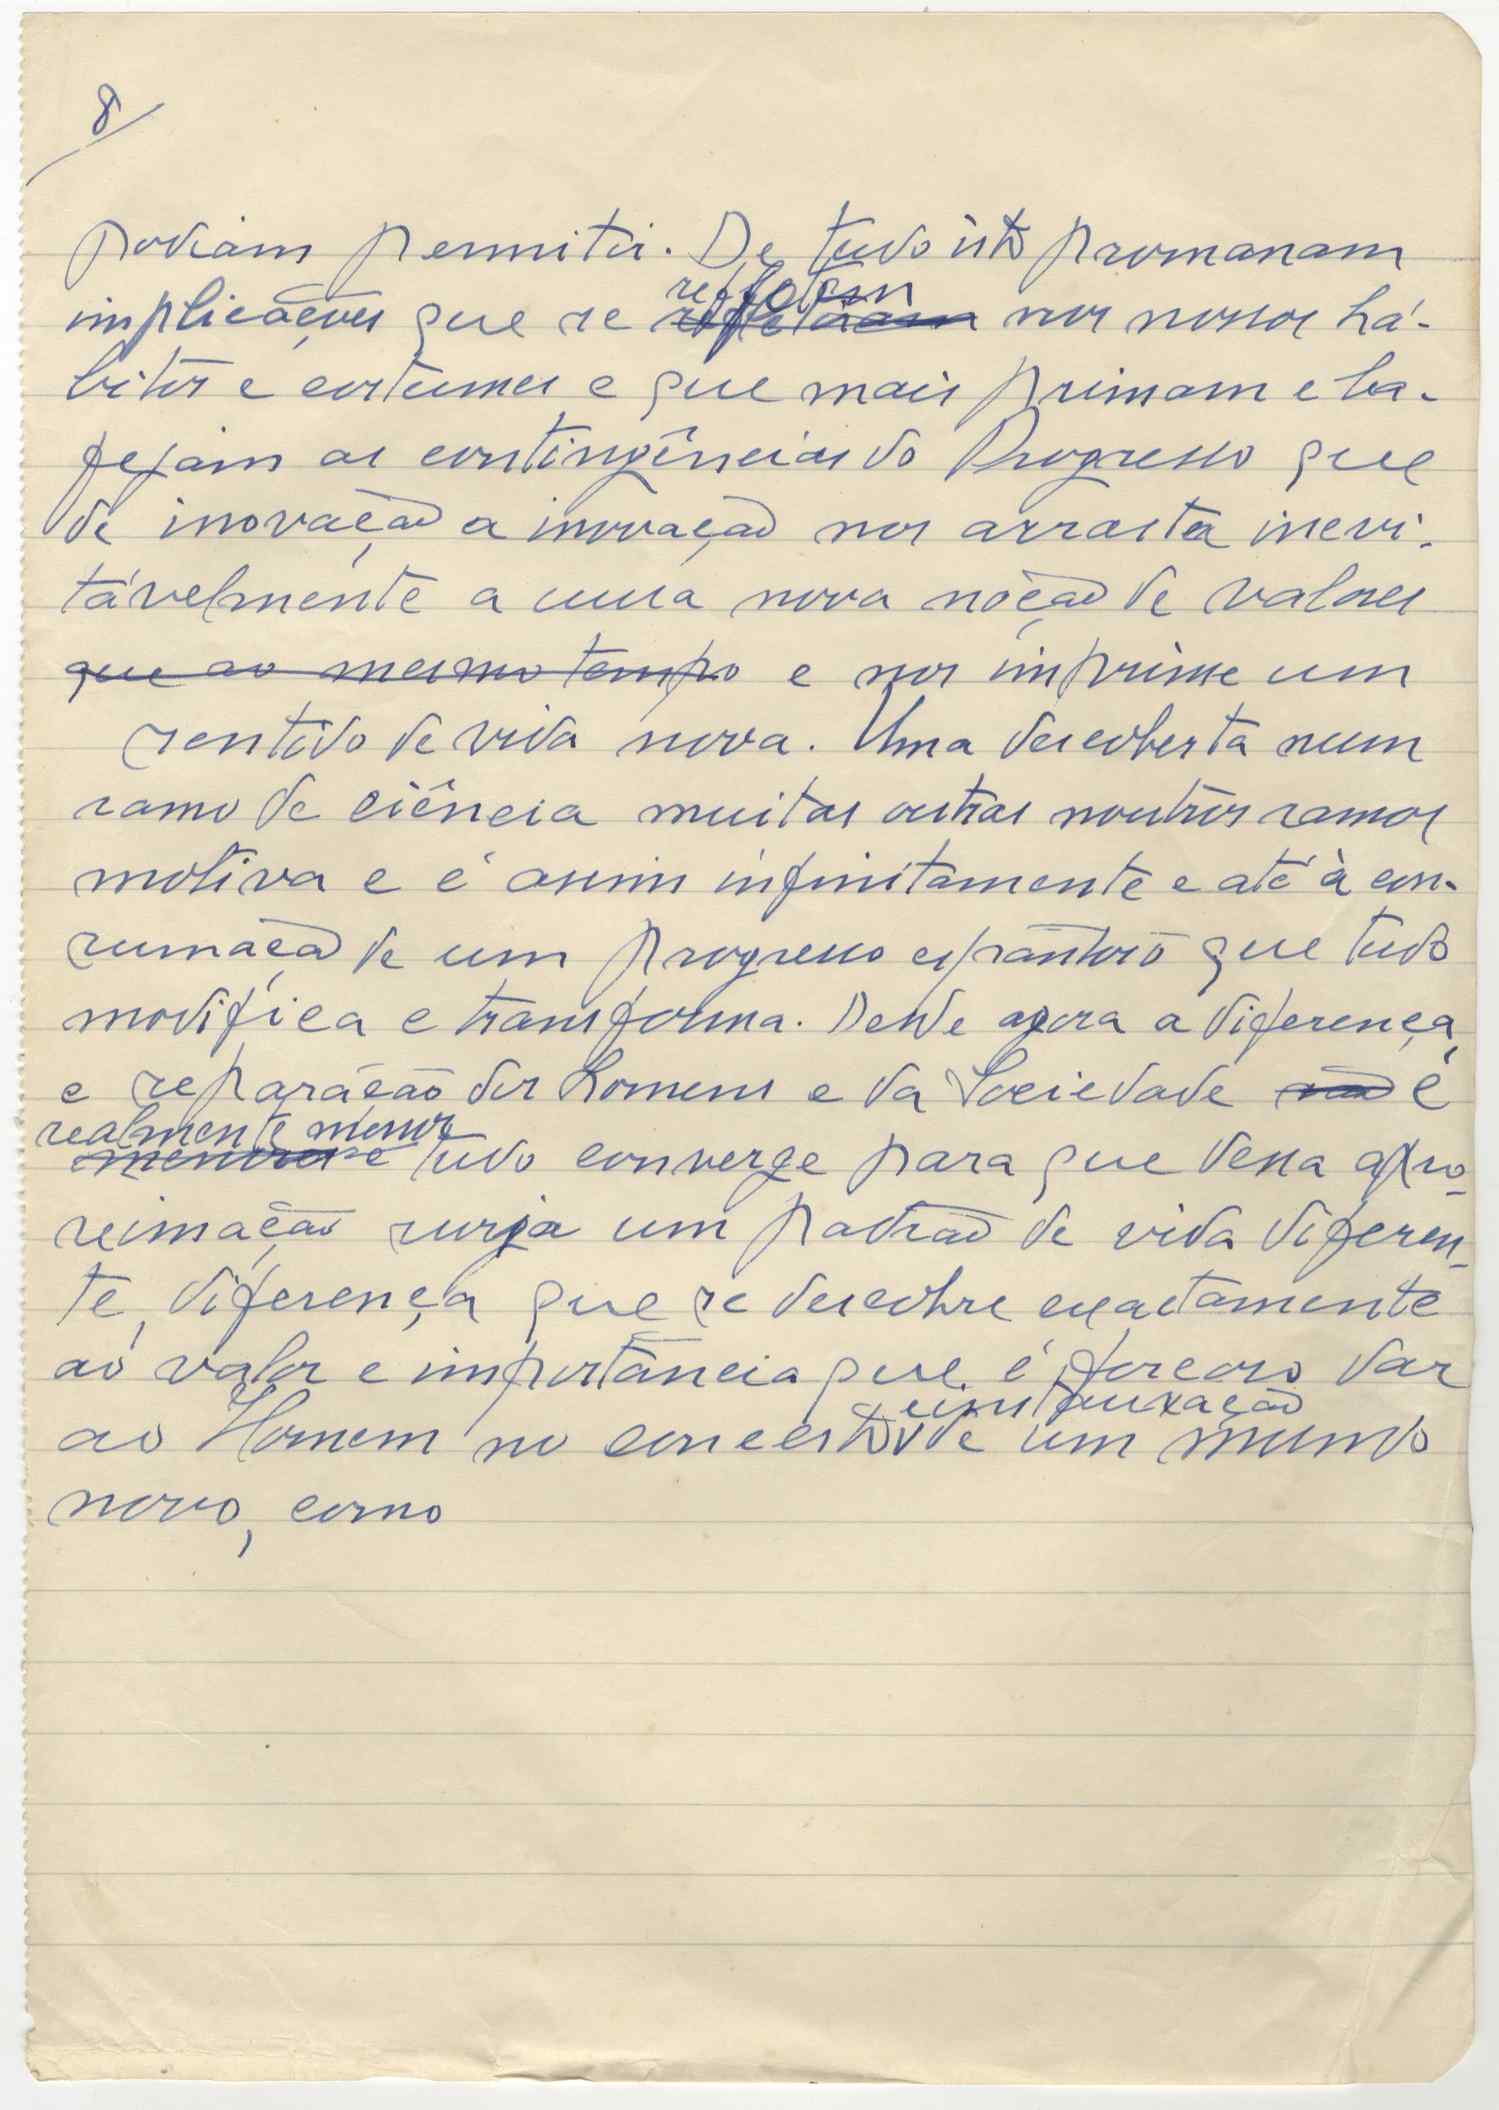 8/
podiam permitir. De tudo isto promanam
reflectem
implicações que se nos nossos há-
bitos e costumes e que mais primam e ba-
fejam as contingências do Progresso que
de inovação a inovação nos arrasta inevi-
távelmente a uma nova noção de valores
que ao mesmo tempo e nos imprime um
sentido de vida nova. Uma descoberta num
ramo de ciência muitas outras noutros ramos
motiva e é assim infinitamente e até à con-
sumação de um progresso espantoso que tudo
modifica e transforma. Desde agora a diferença
e separação dos homens e da Sociedade não é
realmente menor
menores e tudo converge para que dessa apro-
ximação surja um padrão de vida diferen-
te, diferença que se descobre exactamente
ao valor e importância que é forçoso dar
ao Homem no concerto de um mundo
novo, como